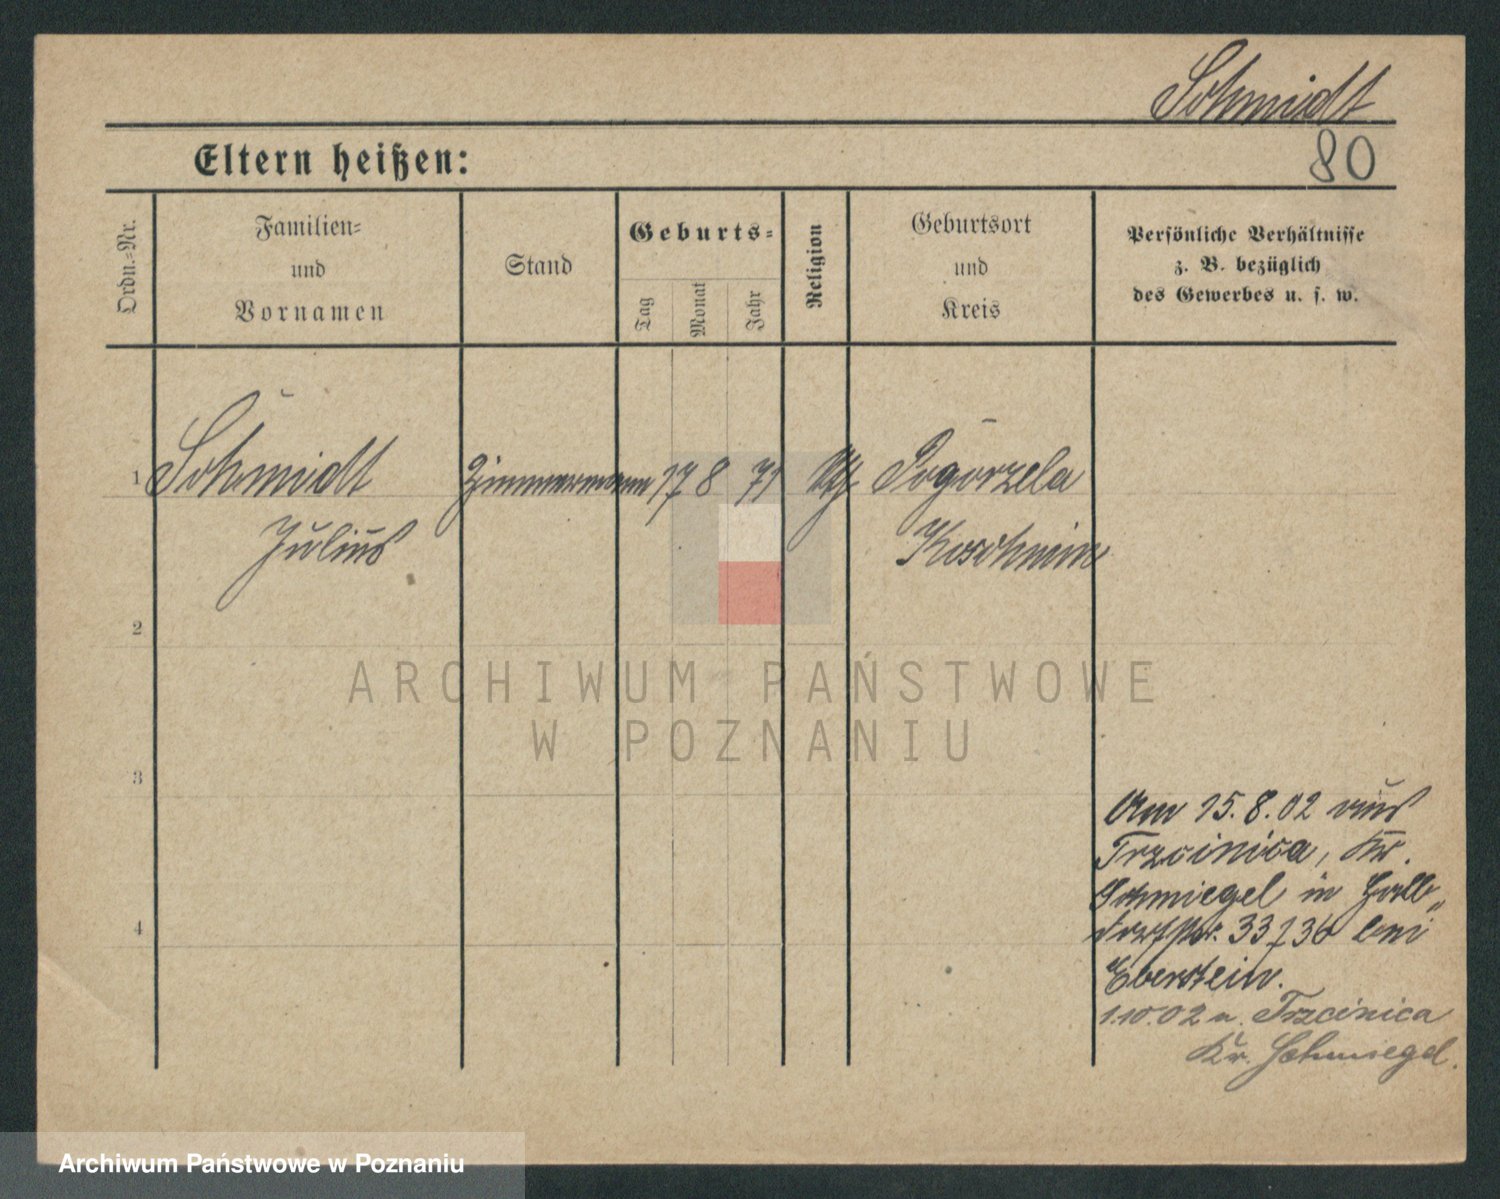 Schmidt
80
Eltern heißen:
Ordn.-Nr.
Familien-
und
Vornamen
Stand
Geburts-
Tag
Monat
Jahr
Religion
Geburtsort
und
Kreis
Persönliche Verhältnisse
z. B. bezüglich
des Gewerbes u. s. w.
1 Schmidt Zimmermann 17 8 71 Pogorzela
Julius Koschmin
2
3
4
Am 15.8.02 aus
Trzcinica, Kr.
Schmiegel in
33/36 bei
Eberstein.
1.10.02 n. Trzcinica
Kr. Schmiegel.
ARCHIWUM PAŃSTWOWE
W POZNANIU
Archiwum Państwowe w Poznaniu